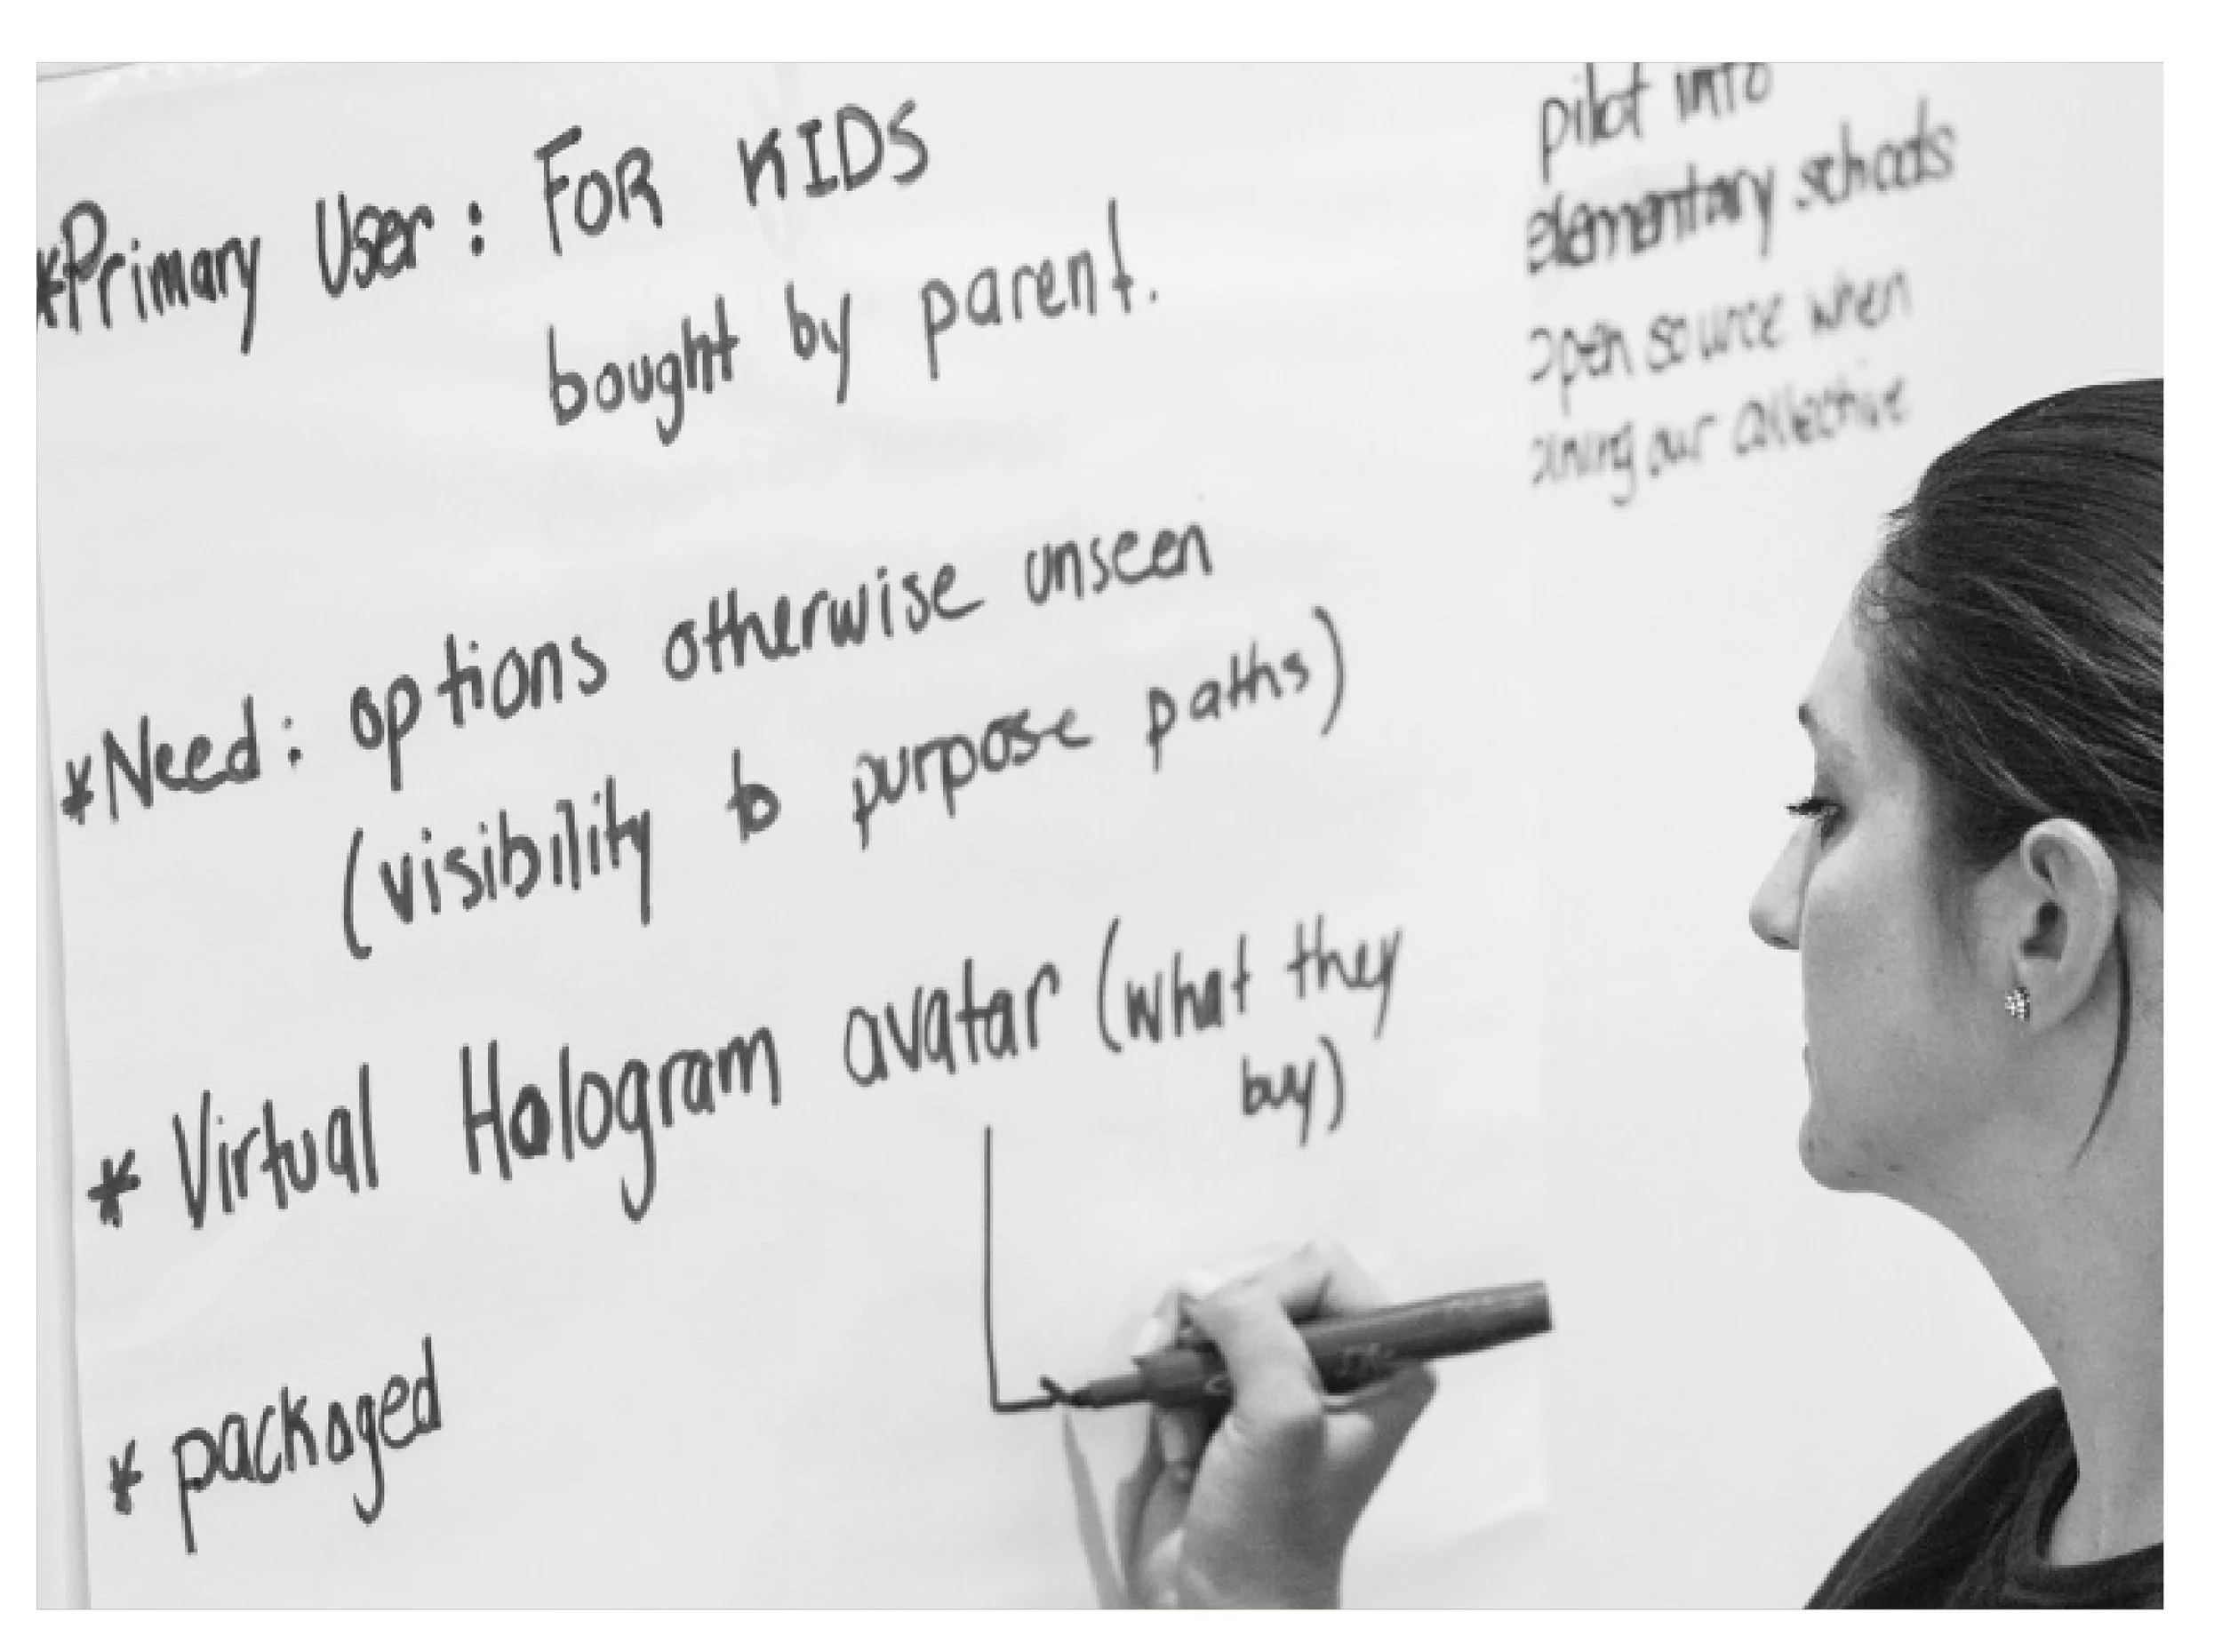 *Primary User: FOR KIDS
bought by parent.
*Need: options otherwise unseen
(visibility to purpose paths)
* Virtual Hologram avatar (what they
buy)
* packaged
pilot into
elementary schools
open source when
our collective